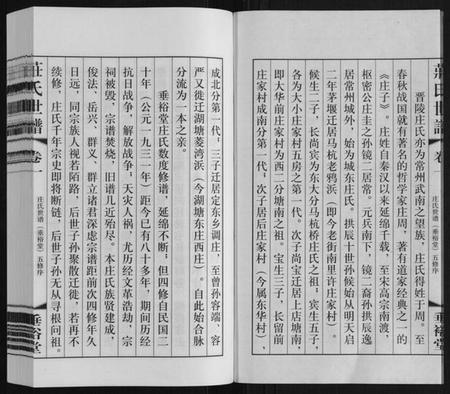 晋陵庄氏亦为常州武南之望族，庄氏得姓于周。至
春秋战国就有著名的哲学家庄周，著有道家经典之一的
《庄子》。庄姓自秦汉以来延绵千载，至宋高宗南渡，
枢密公庄圭之孙镜二居常。元兵南下，镜二裔孙拱辰逸
居常州城外，始为城东庄氏。拱辰十世孙候始从明天启
二年茅堰迁居马杭老鸦浜（即今老街南里许庄家村）。
候生二子，长尚宾为东大分马杭桥庄氏之祖；宾生五子，
各为大小庄家村五房之第一代。次子尚宝迁居上店塘南，
即大华前庄家村为西二分塘南之祖。宝生三子，长留前
庄家村成南分第一代；次子居后庄家村（今属东华村），
成北分第一代；三子迁居定东乡调庄，至曾孙容端、容
严又徙迁湖塘菱湾浜（今湖塘东庄西庄）。自此始合脉
分流为一本之亲。
垂裕堂庄氏数度修谱，延绵不断；但四修自民国二
十年（公元一九三一年）距今已有八十多年，期间历经
抗日战争，解放战争；天灾人祸，尤历经文革浩劫，宗
祠被毁，宗谱焚烧，旧谱几近殆尽。本庄氏族贤建成，
俊法、岳兴、群义、群立诸君深虑宗谱距前次四修年久
日远，同宗族人视若陌路，后世子孙聚散迁徙，若再不
续修，庄氏千年宗史即将断链，后世子孙无从寻根问祖。
莊氏世譜
卷一
庄氏世谱（垂裕堂）五修序
垂裕堂
莊氏世譜
卷一
庄氏世谱（垂裕堂）五修序
垂裕堂